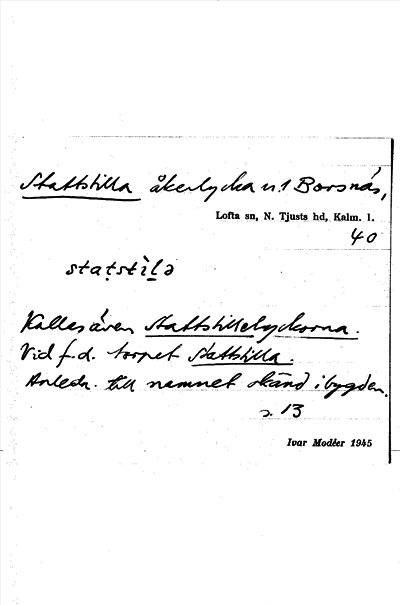 Stattstilla åkerlycka n:1 Borsnäs,
Lofta sn, N. Tjusts hd, Kalm. l.
40
statstìlə
Kallas även Stattstillelyckorna.
Vid f.d. torpet Stattstilla.
Anledn. till namnet okänd i bygden.
s. 13
Ivar Modéer 1945